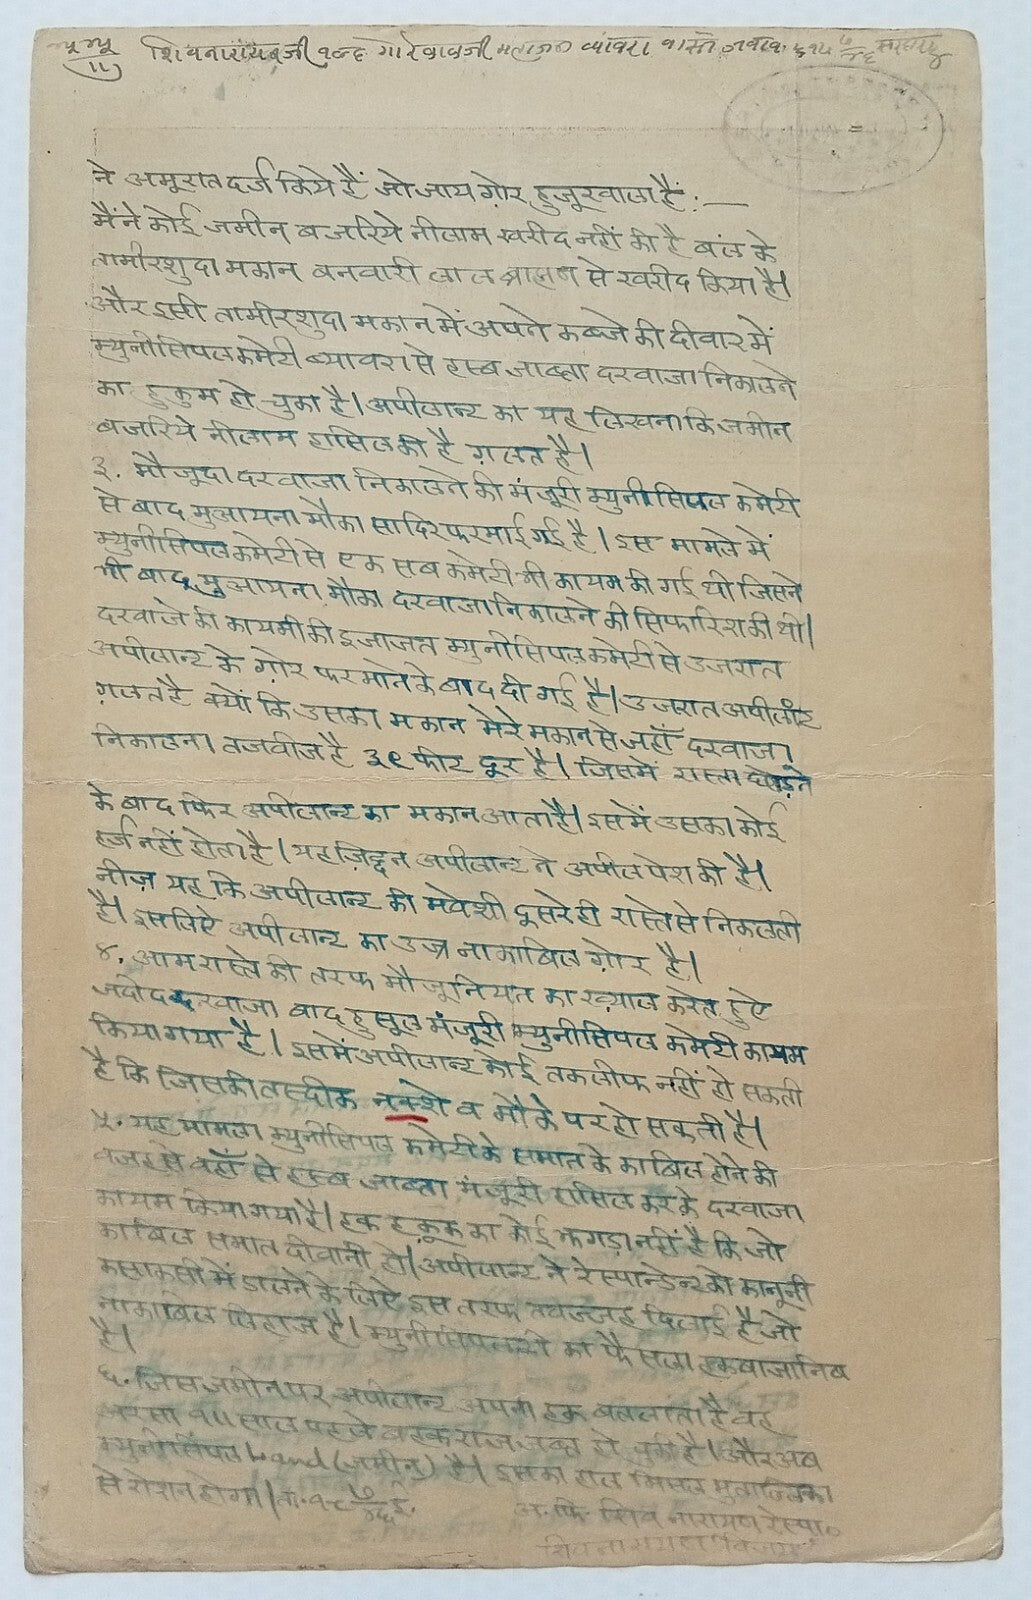 शिवनारायणजी वल्द गोरधनजी महाजन ब्यावरा वास्ते जवाब
ने अमूरात दर्ज किये हैं जो जाय ग़ोर हुजूरवाला हैं:—
मैंने कोई जमीन बजरिये नीलाम खरीद नहीं की है बल के
तामीरशुदा मकान बनवारी लाल ब्राह्मण से खरीद किया है।
और इसी तामीरशुदा मकान में अपने कब्जे की दीवार में
म्युनीसिपल कमेटी ब्यावरा से हस्ब जाब्ता दरवाजा निकालने
का हुकुम हो चुका है। अपीलान्ट का यह लिखना कि जमीन
बजरिये नीलाम हासिल की है ग़लत है।
३. मौजूदा दरवाजा निकालने की मंजूरी म्युनीसिपल कमेटी
से बाद मुलायना मौका सादिर फरमाई गई है। इस मामले में
म्युनीसिपल कमेटी से एक सब कमेटी भी कायम की गई थी जिसने
भी बाद मुलायना मौका दरवाजा निकालने की सिफारिश की थी।
दरवाजे की कायमी की इजाजत म्युनीसिपल कमेटी से उजरात
अपीलान्ट के ग़ोर फरमाने के बाद दी गई है। उजरात अपीलांट
ग़लत है क्यों कि उसका मकान मेरे मकान से जहाँ दरवाजा
निकालना तजवीज है ३९ फीट दूर है। जिसमें रास्ता छोड़ने
के बाद फिर अपीलान्ट का मकान आता है। इसमें उसका कोई
हर्ज नहीं होता है। यह ज़िद्दन अपीलान्ट ने अपील पेश की है।
नीज़ यह कि अपीलान्ट की मवेशी दूसरे ही रास्ते से निकलती
है। इसलिऐ अपीलान्ट का उज्र नाकाबिल ग़ोर है।
४. आम रास्ते की तरफ मौजूनियत का ख़्याल करते हुऐ
जदीद दरवाजा बाद हुसूल मंजूरी म्युनीसिपल कमेटी कायम
किया गया है। इसमें अपीलान्ट कोई तकलीफ नहीं हो सकती
है कि जिसकी तस्दीक नक्शे व मौके पर हो सकती है।
५. यह मामला म्युनीसिपल कमेटी के समात के काबिल होने की
वजह से वहाँ से हस्ब जाब्ता मंजूरी हासिल कर के दरवाजा
कायम किया गया है। हक हकूक का कोई झगड़ा नहीं है कि जो
काबिल समात दीवानी हो। अपीलान्ट ने रेस्पान्डेन्ट को कानूनी
कसाकसी में डालने के लिऐ इस तरफ तवज्जह दिलाई है जो
नाकाबिल लिहाज है। म्युनीसिपलटी का फैसला हकबाजानिब
है।
६. जिस जमीन पर अपीलान्ट अपना हक बतलाता है वह
अरसा १॥ साल पहले बहक राज जब्त हो चुकी है। और अब
म्युनीसिपल Land (जमीन) है। इसका हाल मिसल मुताल्लिका
से रोशन होगा। ता. १८
अ. फि. शिव नारायण रेस्पा०
शिवनारायण